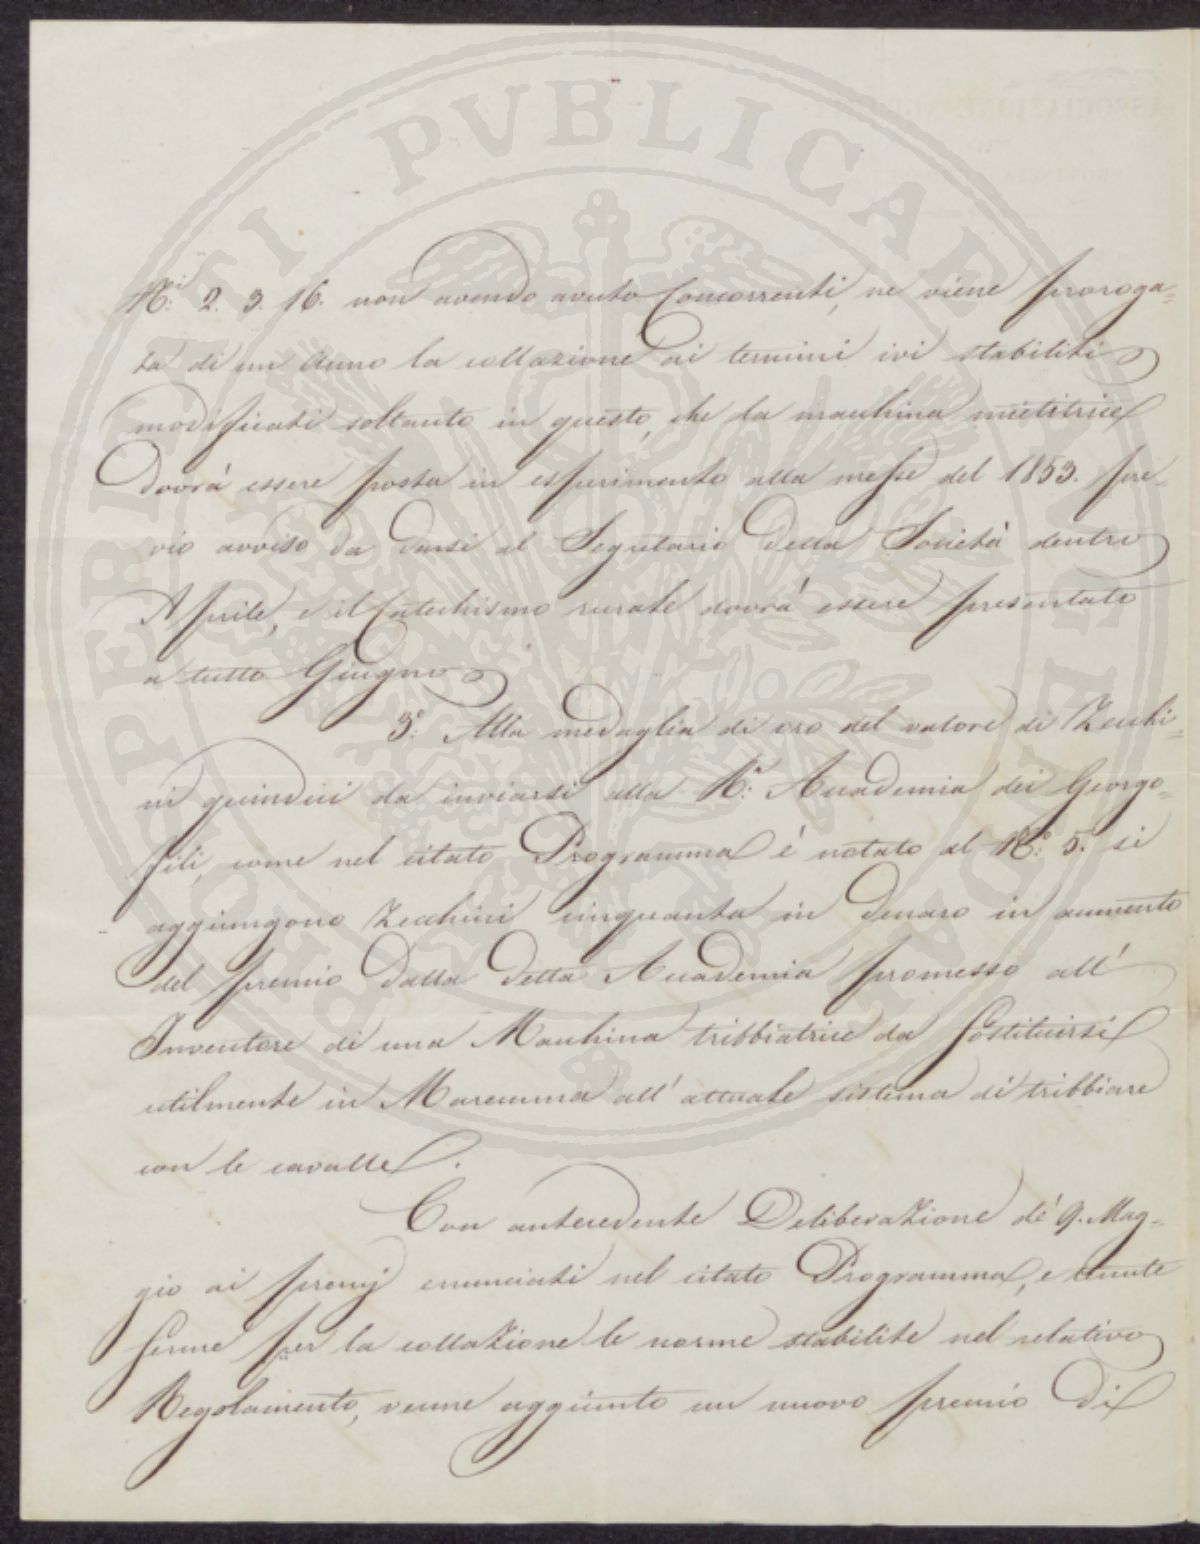 N.i 2. 3. 16. non avendo avuto Concorrenti, ne viene proroga=
ta di un Anno la collazione ai termini ivi stabiliti
modificati soltanto in questo, che la macchina mietitrice
dovrà essere posta in esperimento alla messe del 1853. pre=
vio avviso da darsi al Segretario della Società dentro
Aprile, e il Catechismo rurale dovrà essere presentato
a tutto Giugno
3.° Alla medaglia di oro del valore di Zecchi=
ni quindici da inviarsi alla R.a Accademia dei Georgo=
fili, come nel citato Programma è notato al N.° 5. si
aggiungono Zecchini cinquanta in denaro in aumento
del premio dalla detta Accademia promesso all'
Inventore di una Macchina tribbiatrice da sostituirsi
utilmente in Maremma all' attuale sistema di tribbiare
con le cavalle.
Con antecedente Deliberazione de' 9. Mag=
gio ai premj enunciati nel citato Programma, e tenute
ferme per la collazione le norme stabilite nel relativo
Regolamento, venne aggiunto un nuovo premio di
PERUSI PUBLICAE